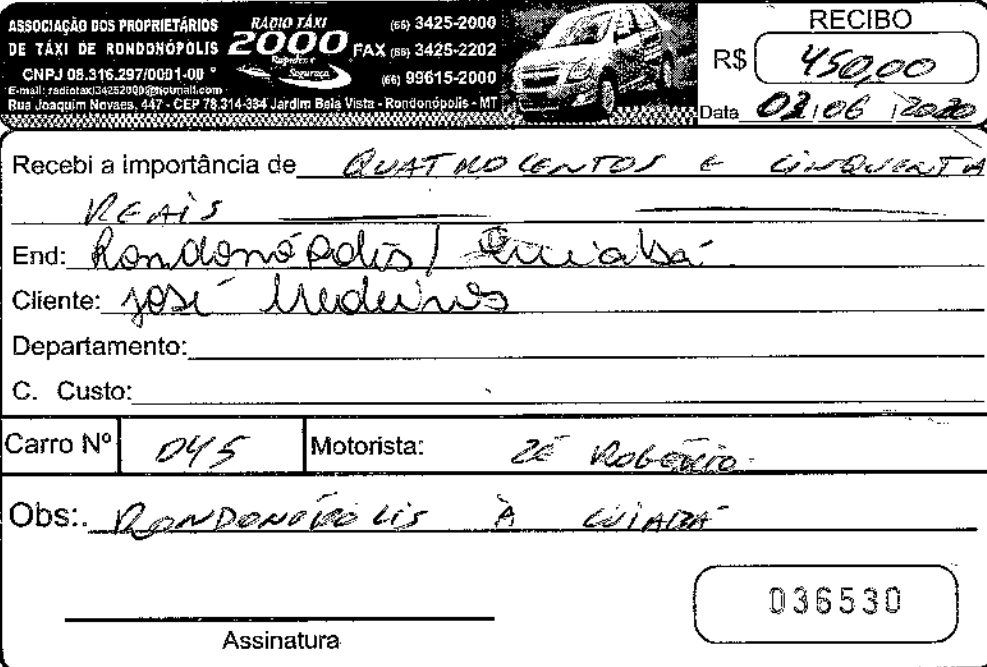 ASSOCIAÇÃO DOS PROPRIETÁRIOS
DE TÁXI DE RONDONÓPOLIS
CNPJ 08.316.297/0001-00
E-mail: radiotaxi34252000@hotmail.com
Rua Joaquim Novaes, 447 - CEP 78.314-334 Jardim Bela Vista - Rondonópolis - MT
RADIO TÁXI
2000
Rapidez e
Segurança
(66) 3425-2000
FAX (66) 3425-2202
(66) 99615-2000
RECIBO
R$ 450,00
Data 02/06/2020
Recebi a importância de QUATROCENTOS E CINQUENTA
REAIS
End: Rondonópolis/ Cuiabá
Cliente: José Medeiros
Departamento:
C. Custo:
Carro Nº 045 Motorista: ZÉ ROBERTO
Obs:. RONDONÓPOLIS À CUIABÁ
036530
Assinatura